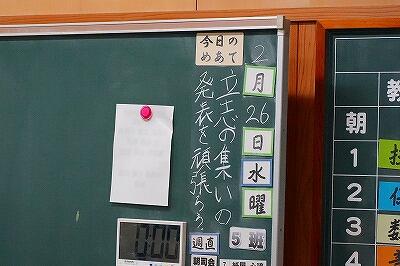 2月26日水曜
今日の
めあて
立志の集いの
発表を頑張ろう。
週直
5班
朝司会
000
教
朝
1
2
3
4